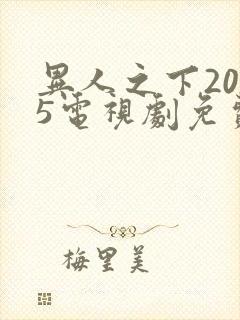 異人之下20
5電視劇免費
梅里美